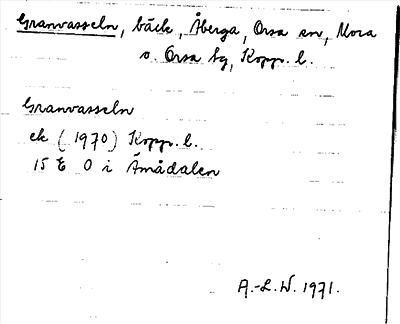 Granvasseln, bäck, Åberga, Orsa sn, Mora
o. Orsa tg, Kopp. l.
Granvasseln
ek (1970) Kopp. l.
15 E O i Åmådalen
A.-L. W. 1971.